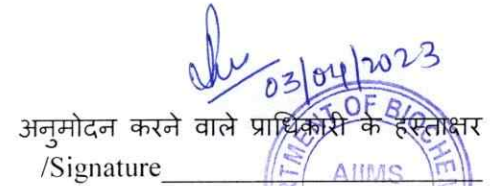 03/04/2023
अनुमोदन करने वाले प्राधिकारी के हस्ताक्षर
/Signature
MENT OF BIOCHEM
AIIMS